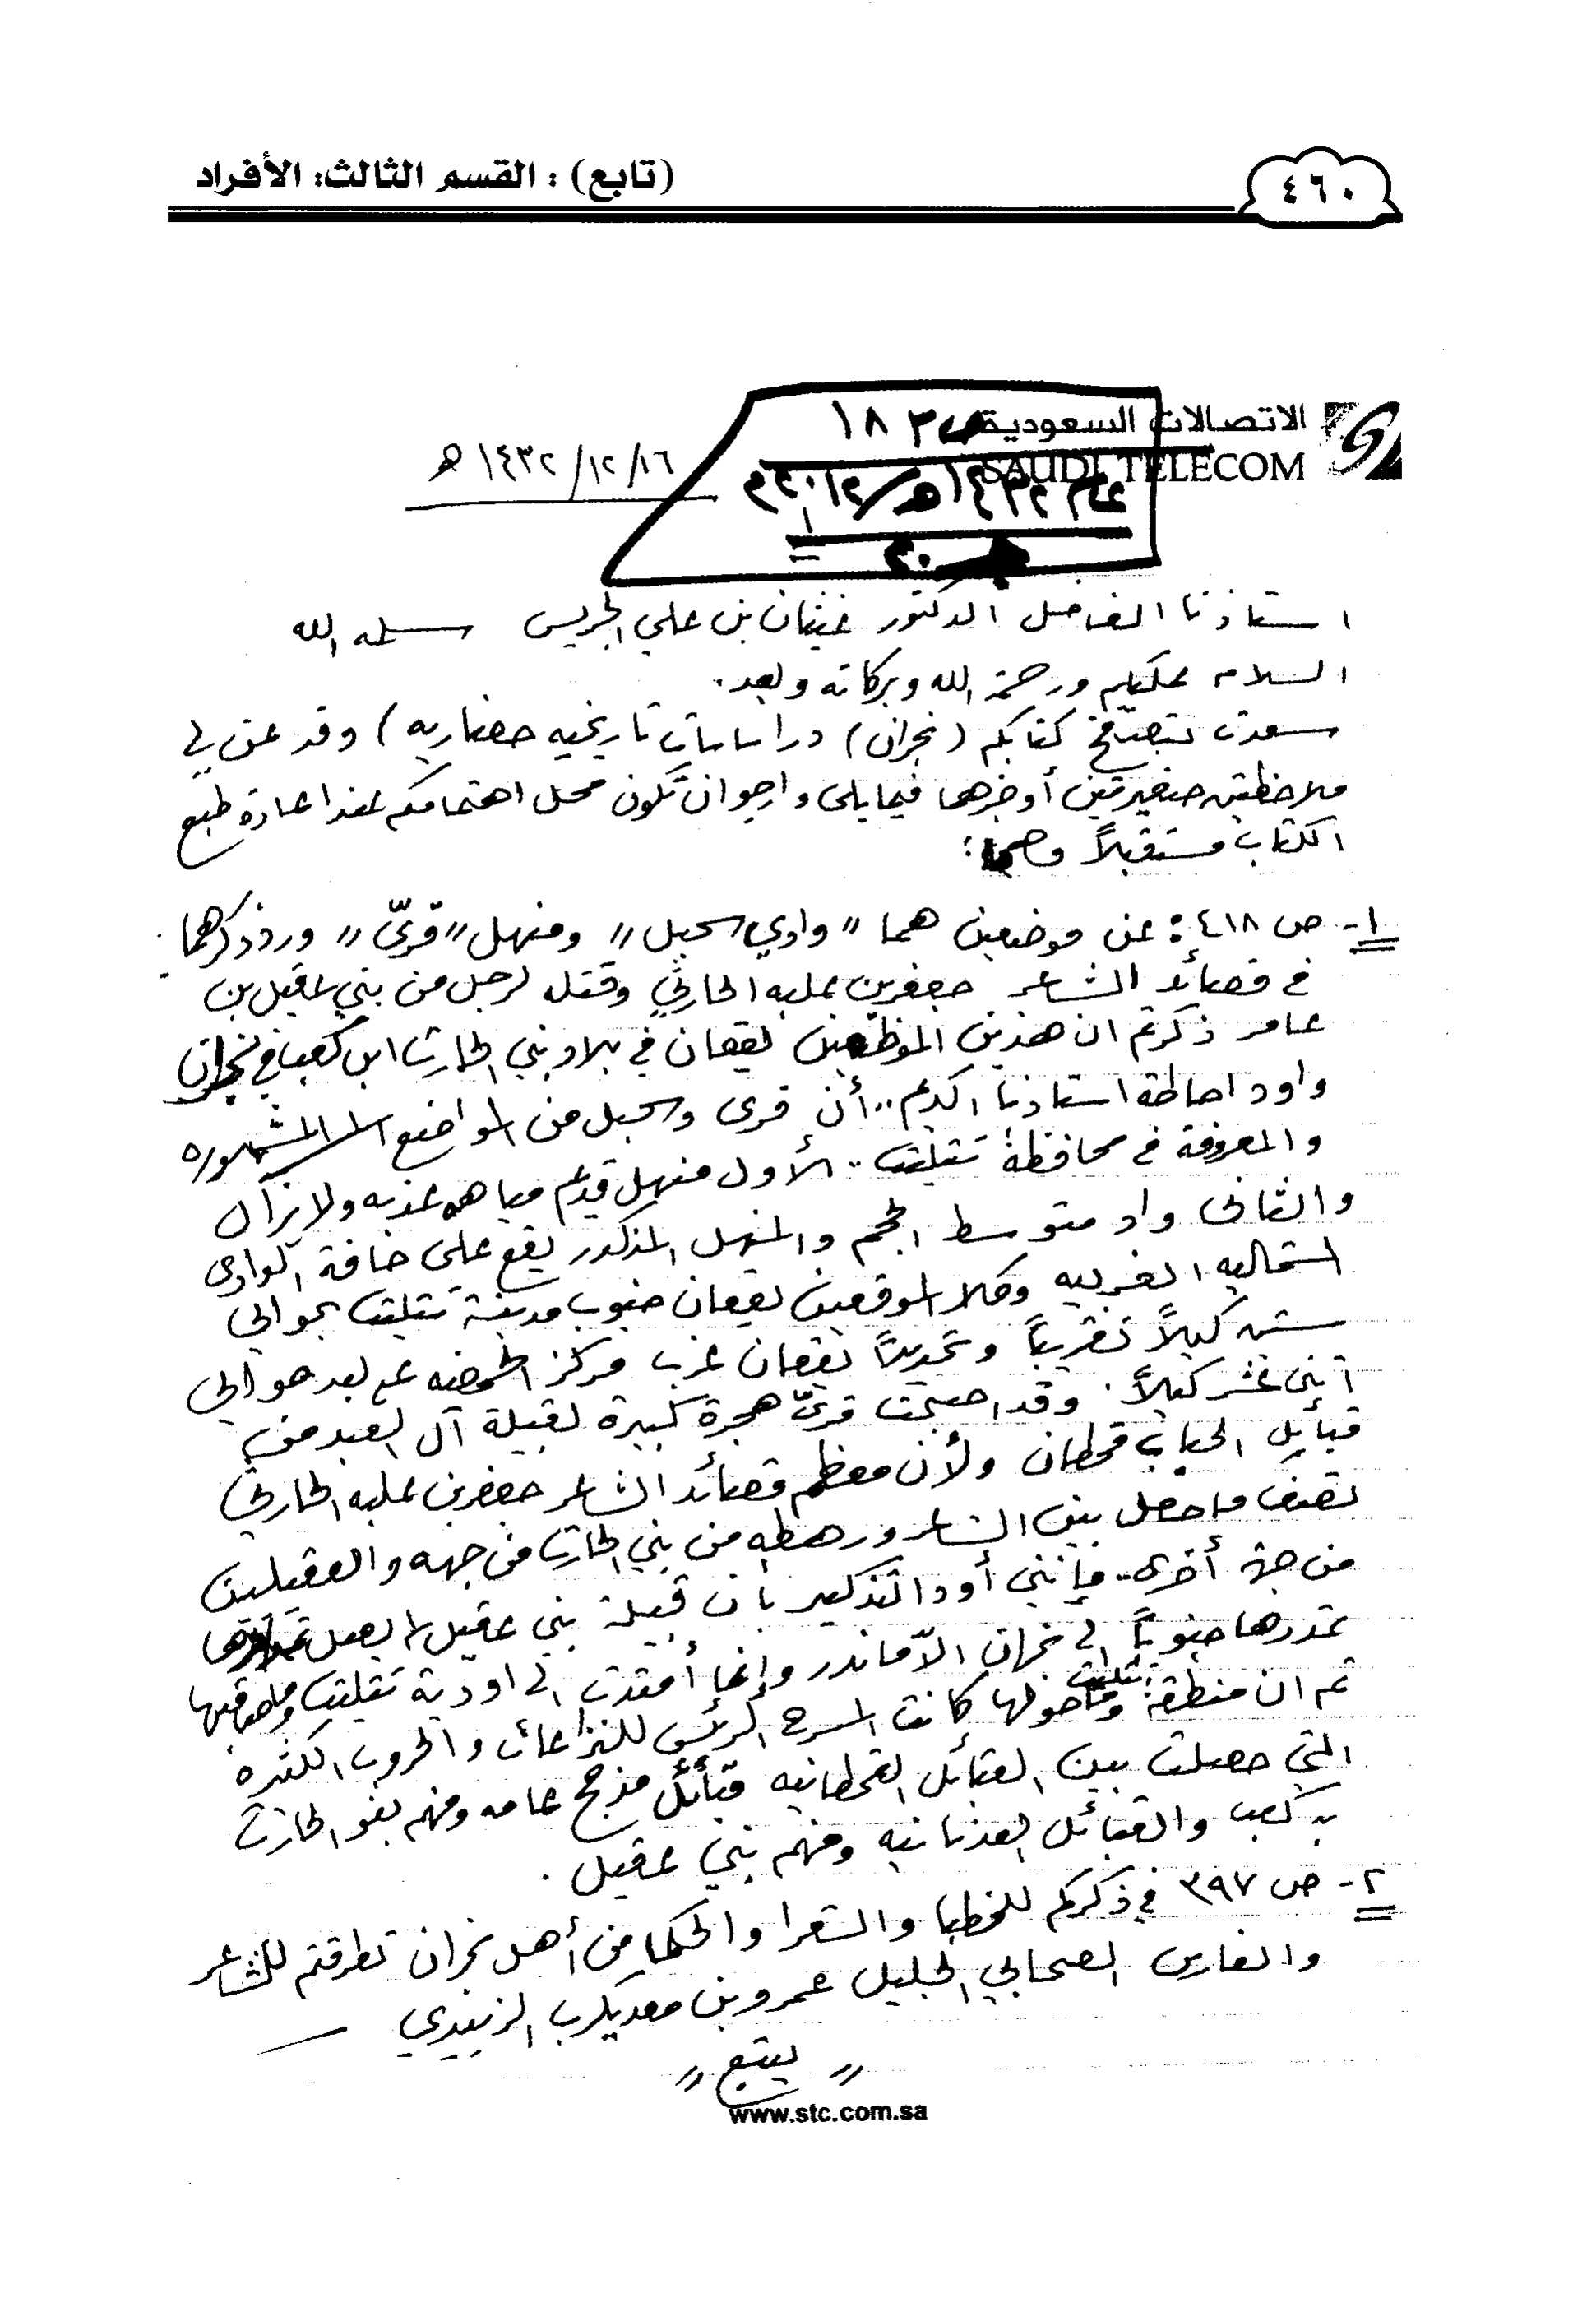 (تابع) : القسم الثالث: الأفراد
٤٦٠
الاتصالات السعودية
SAUDI TELECOM
ص ١٨٣
عام ١٤٣٢هـ/٢٠١١م
١٤٣٢/١٢/١٦هـ
استاذنا الفاضل الدكتور غيثان بن علي الجريس سلمه الله
السلام عليكم ورحمة الله وبركاته وبعد.
سعدت بتصفح كتابكم (نجران) دراسات تاريخيه حضاريه) وقد عن لي
ملاحظتين صغيرتين أوجزهما فيما يلي وارجو ان تكون محل اهتمامكم عند اعادة طبع
الكتاب مستقبلاً وهما:
١- ص ٤١٨: عن موضعين هما "وادي سحبل" ومنهل "قرىّ" ورد ذكرهما
في قصائد الشاعر جعفر بن علبه الحارثي وقتله لرجل من بني عقيل بن
عامر ذكرتم ان هذين الموظعين يقعان في بلاد بني الحارث ابن كعب في نجران
واود احاطة استاذنا الكريم.. أن قرى وسحبل من المواضع المشهوره
والمعروفة في محافظة تثليث.. الأول منهل قديم مياهه عذبه ولا تزال
والثاني واد متوسط الحجم والمنهل المذكور يقع على حافة الوادي
الشماليه الغربيه وكلا الموقعين يقعان جنوب مدينة تثليث بحوالي
ستين كيلاً تقريباً وتحديداً يقعان غرب مركز الحمضه على بعد حوالي
اثني عشر كيلاً. وقد اصبحت قرىّ هجرة كبيرة لقبيلة آل العبد من
قبائل الحباب قحطان ولأن معظم قصائد الشاعر جعفر بن علبه الحارثي
تصف ما حصل بين الشاعر ورهطه من بني الحارث من جهه والعقيليين
من جهة أخرى.. فإنني أود التذكير بأن قبيلة بني عقيل لم يصل
تمددها جنوباً الى نجران الاّ ماندر وإنما أمتدت الى اودية تثليث وما صاقبها
ثم ان منطقة تثليث وما حولها كانت المسرح الرئسي للنزاعات والحروب الكثيرة
التي حصلت بين القبائل القحطانيه قبائل مذحج عامه ومنهم بنو الحارث
بن كعب والقبائل العدنانيه ومنهم بني عقيل.
٢- ص ٣٩٧ في ذكركم للخطبا والشعرا والحكما من أهل نجران تطرقتم للشاعر
والفارس الصحابي الجليل عمرو بن معديكرب الزبيدي
" يتبع "
www.stc.com.sa